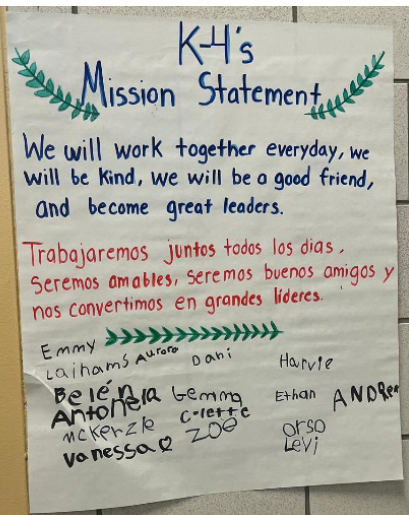 K-4's
Mission Statement
We will work together everyday, we
will be kind, we will be a good friend,
and become great leaders.
Trabajaremos juntos todos los dias.
Seremos amables, seremos buenos amigos y
nos convertimos en grandes lideres.
Emmy
Laihams Aurora Dani Harvie
Belén Gemma Ethan ANDREA
Antonela Colette
McKerzle ZOE Orso
Vanessa Levi